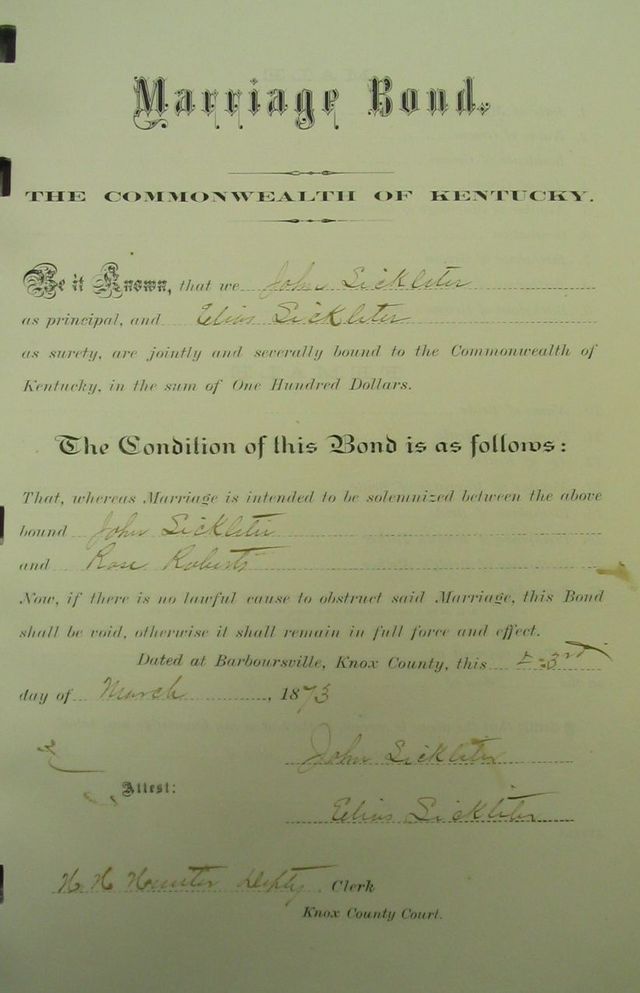 Marriage Bond.
THE COMMONWEALTH OF KENTUCKY.
Be it Known, that we John Sickleter
as principal, and Elias Sickleter
as surety, are jointly and severally bound to the Commonwealth of
Kentucky, in the sum of One Hundred Dollars.
The Condition of this Bond is as follows:
That, whereas Marriage is intended to be solemnized between the above
bound John Sickleter
and Rose Roberts
Now, if there is no lawful cause to obstruct said Marriage, this Bond
shall be void, otherwise it shall remain in full force and effect.
Dated at Barboursville, Knox County, this 3rd
day of March, 1873
John Sickleter
Attest:
Elias Sickleter
H. H. Hunter Depty. Clerk
Knox County Court.